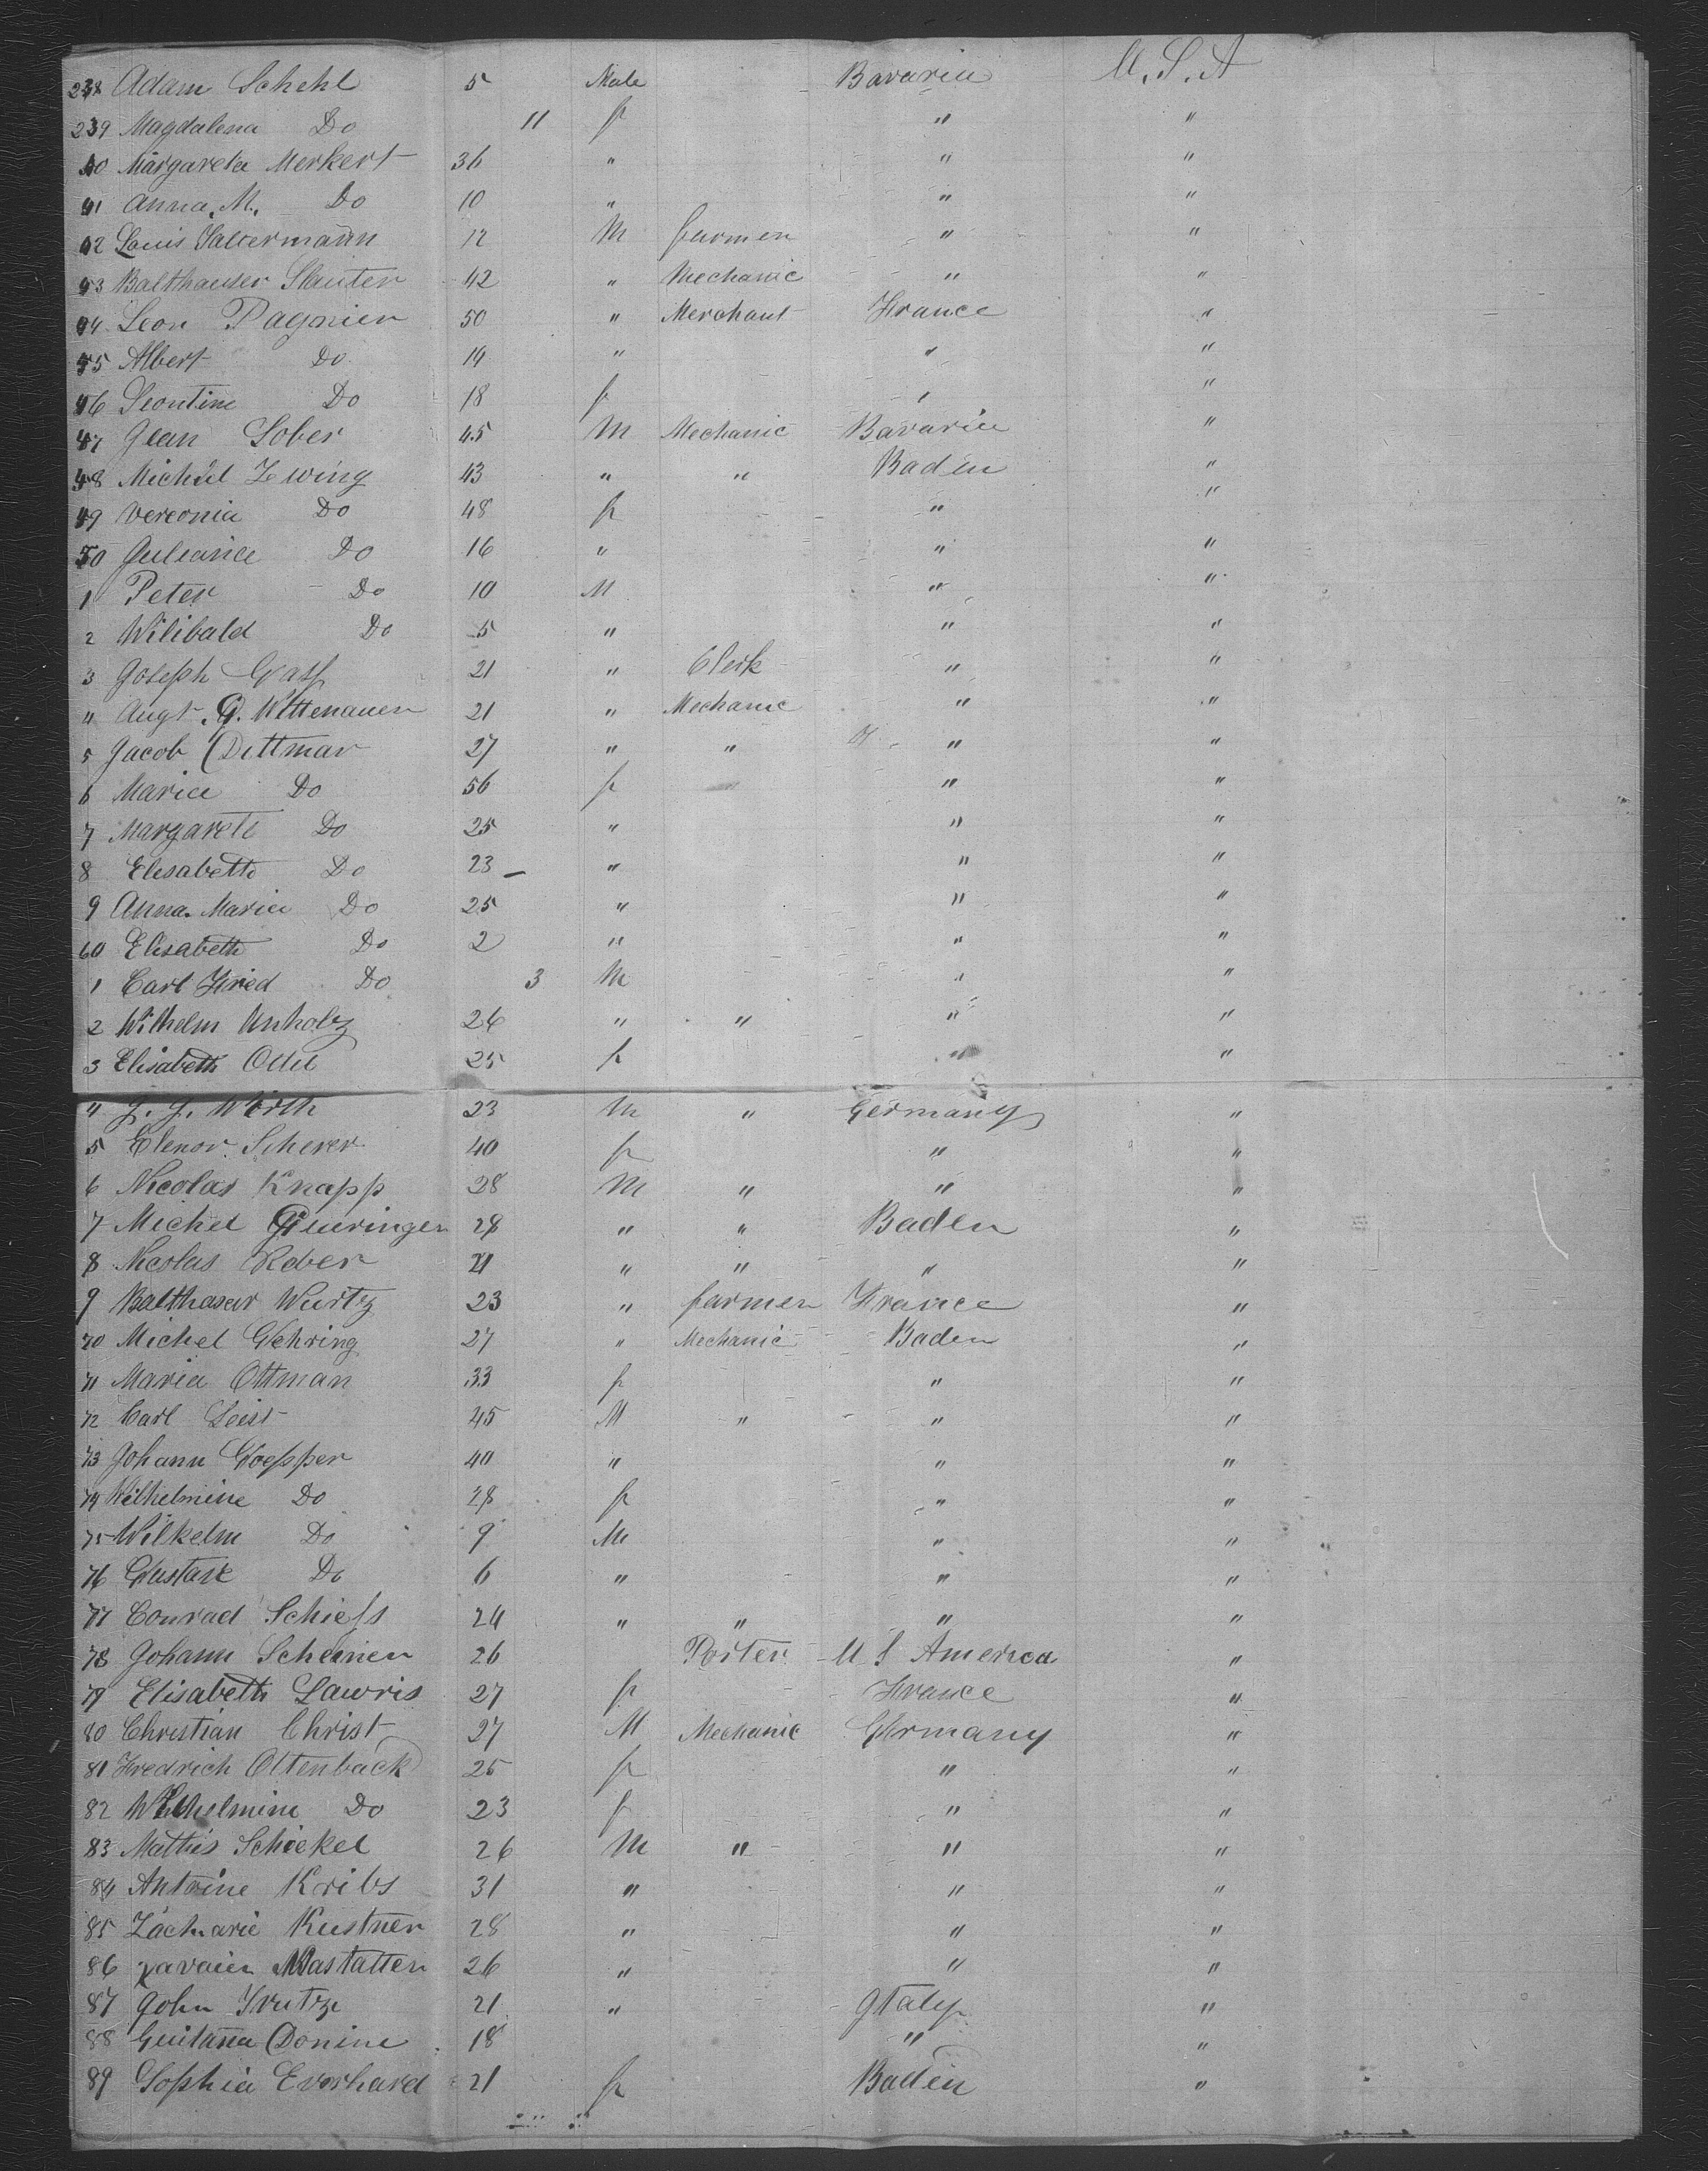 238 Adam Schehl 5 Male Bavaria U. S. A
239 Magdalena Do 11 f " "
40 Margareta Merkert 36 " " "
41 Anna. M. Do 10 " " "
42 Louis Saltermann 12 M farmer " "
43 Balthauser Slauter 42 " Mechanic " "
44 Leon Pagnier 50 " Merchant France "
45 Albert Do 14 " " "
46 Leontine Do 18 f " "
47 Jean Sober 45 M Mechanic Bavaria "
48 Michel Zwing 43 " " Baden "
49 Vereonia Do 48 f " "
50 Juliania Do 16 " " "
1 Peter Do 10 M " "
2 Wilibald Do 5 " " "
3 Joseph Gass 21 " Clerk " "
4 Augt. G. Wittenauer 21 " Mechanic " "
5 Jacob Dittmar 27 " " " "
6 Maria Do 56 f " "
7 Margareth Do 25 " " "
8 Elisabetth Do 23 " " "
9 Anna. Maria Do 25 " " "
60 Elisabeth Do 2 " " "
1 Carl Fried Do 3 M " "
2 Wilhelm Unholz 26 " " " "
3 Elisabeth 25 f " "
4 J. J. Wirth 23 M " Germany "
5 Elenor Scherer 40 f " "
6 Nicolas Knapp 28 M " " "
7 Michel Geuringer 28 " " Baden "
8 Nicolas Rober 21 " " " "
9 Balthasar Wurtz 23 " farmer France "
70 Michel Gehring 27 " Mechanic Baden "
71 Maria Ottman 33 f " "
72 Carl Leist 45 M " " "
73 Johann Goepper 40 " " "
74 Wilhelmine Do 28 f " "
75 Wilhelm Do 9 M " "
76 Gustave Do 6 " " "
77 Conrad Schiess 24 " " " "
78 Johann 26 Porter U S America "
79 Elisabeth Lawris 27 f France "
80 Christian Christ 27 M Mechanic Germany "
81 Fredrich Ottenback 25 f " "
82 Wilhelmine Do 23 f " "
83 Mathis Schickel 26 M " " "
84 Antoine Kribs 31 " " "
85 Zacharie Kustner 28 " " "
86 Xavaier Mastatter 26 " " "
87 John 21 " Italy "
88 Guitanna Donine 18 " "
89 Sophia Everhard 21 f Baden "